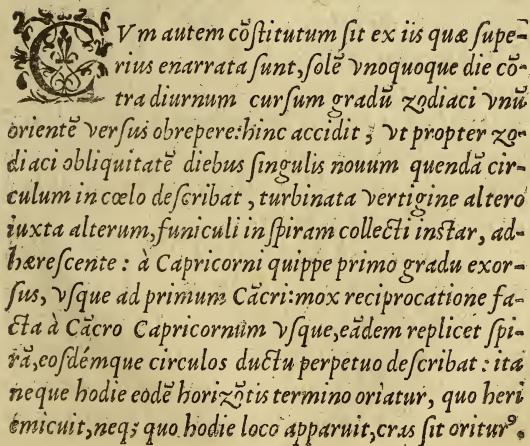 CVm autem cõſtitutum ſit ex iis quæ ſupe-
rius enarrata ſunt, ſolẽ vnoquoque die cõ-
tra diurnum curſum gradũ zodiaci vnũ
orientẽ verſus obrepere: hinc accidit ; vt propter zo-
diaci obliquitatẽ diebus ſingulis nouum quendã cir-
culum in cœlo deſcribat , turbinata vertigine altero
iuxta alterum, funiculi in ſpiram collecti inſtar, ad-
hæreſcente : à Capricorni quippe primo gradu exor-
ſus, vſque ad primum Cãcri: mox reciprocatione fa-
cta à Cãcro Capricornum vſque, eãdem replicet ſpi-
rã, eoſdémque circulos ductu perpetuo deſcribat : ita
neque hodie eodẽ horizõtis termino oriatur, quo heri
emicuit, neqꝫ quo hodie loco apparuit, cras ſit oriturꝰ.